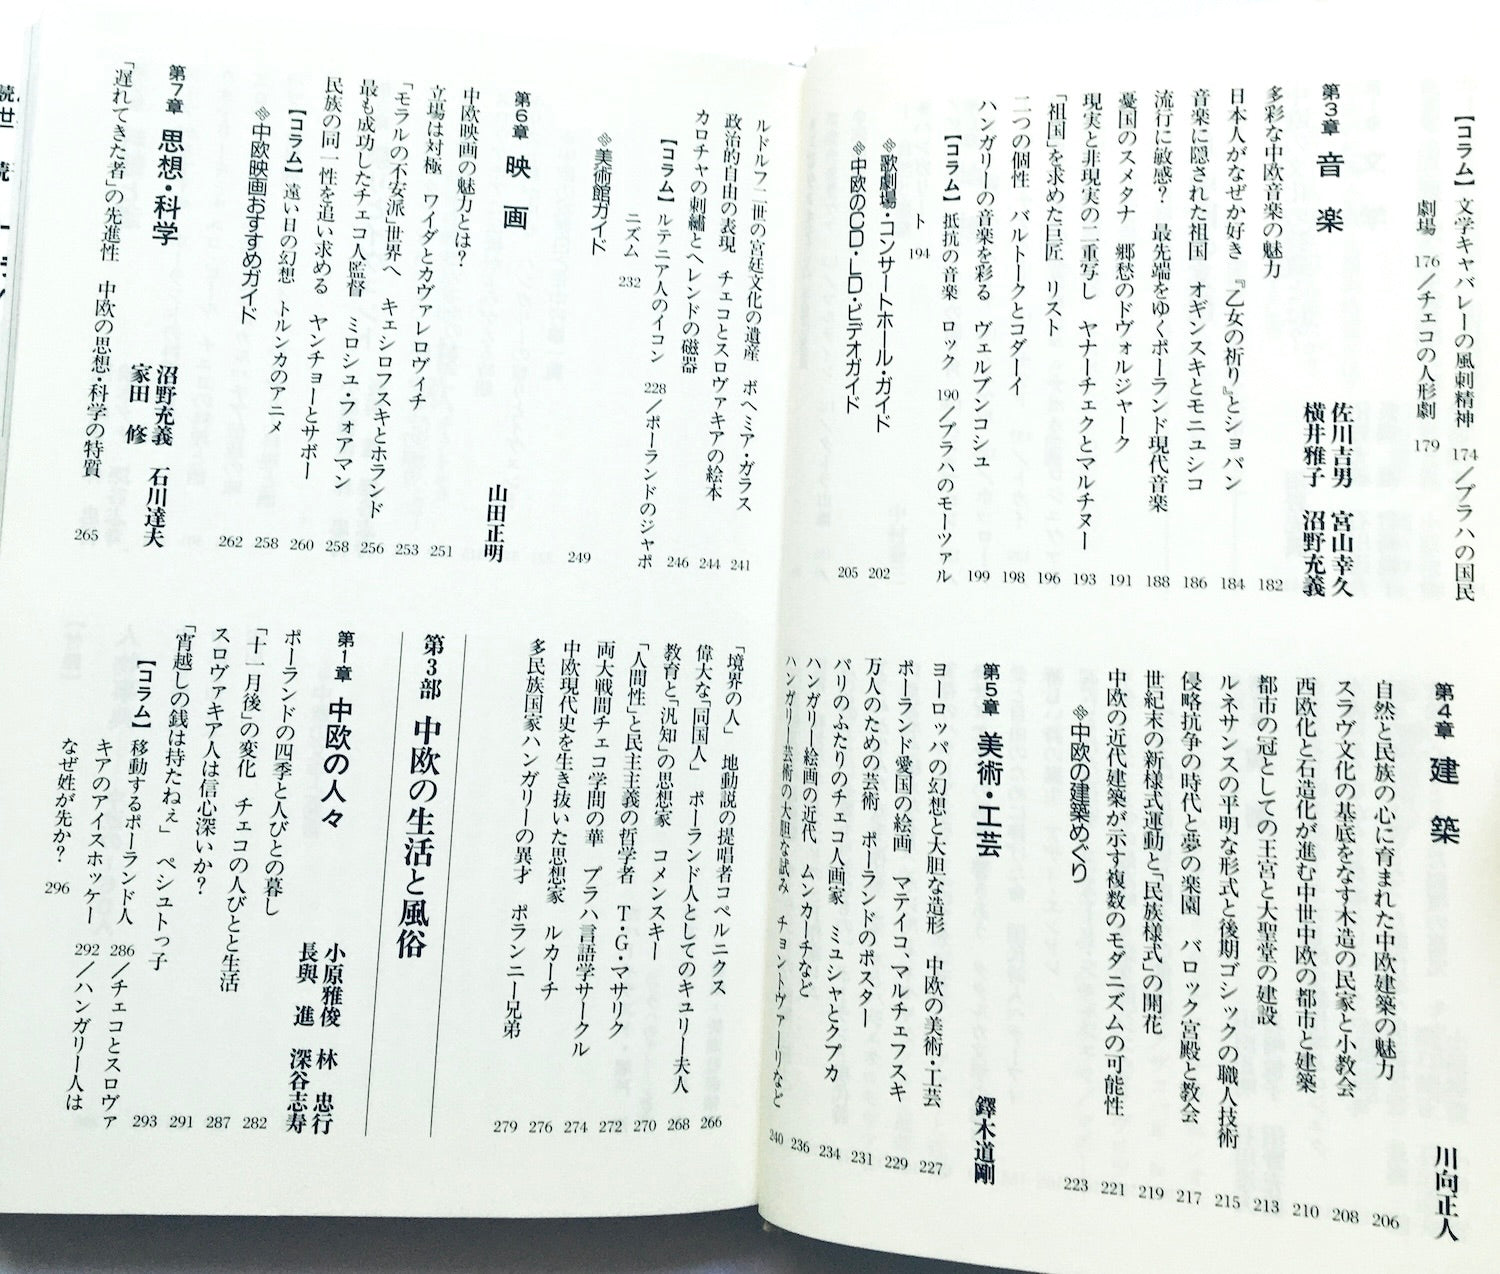 【コラム】文学キャバレーの風刺精神 174／プラハの国民
劇場 176／チェコの人形劇 179
第3章 音楽
佐川吉男 宮山幸久
横井雅子 沼野充義
多彩な中欧音楽の魅力 182
日本人がなぜか好き 『乙女の祈り』とショパン 184
音楽に隠された祖国 オギンスキとモニュシコ 186
流行に敏感? 最先端をゆくポーランド現代音楽 188
憂国のスメタナ 郷愁のドヴォルジャーク 191
現実と非現実の二重写し ヤナーチェクとマルチヌー 193
「祖国」を求めた巨匠 リスト 196
二つの個性 バルトークとコダーイ 198
ハンガリーの音楽を彩る ヴェルブンコシュ 199
【コラム】抵抗の音楽 ロック 190／プラハのモーツァル
ト 194
歌劇場・コンサートホール・ガイド 202
中欧のCD・LD・ビデオガイド 205
第4章 建築
川向正人
自然と民族の心に育まれた中欧建築の魅力 206
スラヴ文化の基底をなす木造の民家と小教会 208
西欧化と石造化が進む中世中欧の都市と建築 210
都市の冠としての王宮と大聖堂の建設 213
ルネサンスの平明な形式と後期ゴシックの職人技術 215
侵略抗争の時代と夢の楽園 バロック宮殿と教会 217
世紀末の新様式運動と「民族様式」の開花 219
中欧の近代建築が示す複数のモダニズムの可能性 221
中欧の建築めぐり 223
第5章 美術・工芸
鐸木道剛
ヨーロッパの幻想と大胆な造形 中欧の美術・工芸 227
ポーランド愛国の絵画 マテイコ、マルチェフスキ 229
万人のための芸術 ポーランドのポスター 231
パリのふたりのチェコ人画家 ミュシャとクプカ 234
ハンガリー絵画の近代 ムンカーチなど 236
ハンガリー芸術の大胆な試み チョントヴァーリなど 240
ルドルフ二世の宮廷文化の遺産 ボヘミア・ガラス 241
政治的自由の表現 チェコとスロヴァキアの絵本 244
カロチャの刺繍とヘレンドの磁器 246
【コラム】ルテニア人のイコン 228／ポーランドのジャポ
ニズム 232
美術館ガイド 249
第6章 映画
山田正明
中欧映画の魅力とは? 251
立場は対極 ワイダとカヴァレロヴィチ 253
「モラルの不安派」世界へ キェシロフスキとホランド 256
最も成功したチェコ人監督 ミロシュ・フォアマン 258
民族の同一性を追い求める ヤンチョーとサボー 260
【コラム】遠い日の幻想 トルンカのアニメ 258
中欧映画おすすめガイド 262
第7章 思想・科学
沼野充義 石川達夫
家田 修
「遅れてきた者」の先進性 中欧の思想・科学の特質 265
「境界の人」 地動説の提唱者コペルニクス 266
偉大な「同国人」 ポーランド人としてのキュリー夫人 268
教育と「汎知」の思想家 コメンスキー 270
「人間性」と民主主義の哲学者 T・G・マサリク 272
両大戦間チェコ学問の華 プラハ言語学サークル 274
中欧現代史を生き抜いた思想家 ルカーチ 276
多民族国家ハンガリーの異才 ポランニー兄弟 279
第3部 中欧の生活と風俗
第1章 中欧の人々
小原雅俊 林 忠行
長與 進 深谷志寿
ポーランドの四季と人びとの暮し 282
「十一月後」の変化 チェコの人びとと生活 287
スロヴァキア人は信心深いか? 291
「宵越しの銭は持たねぇ」 ペシュトっ子 293
【コラム】移動するポーランド人 286／チェコとスロヴァ
キアのアイスホッケー 292／ハンガリー人は
なぜ姓が先か? 296